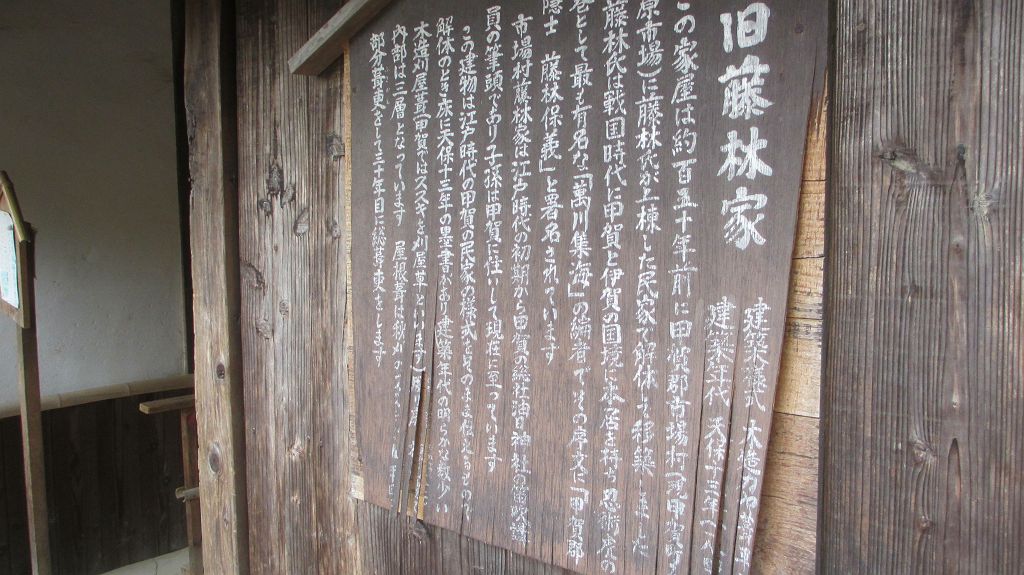 旧藤林家
建築様式 木造
建築年代 天保十三年
この家屋は約百五十年前に甲賀郡市場村(現甲賀町
原市場)に藤林氏が上棟した民家で解体して移築しました
藤林氏は戦国時代に甲賀と伊賀の国境に本居を持つ忍術家の
として最も有名な「萬川集海」の編者でその序文に「甲賀郡
隠士 藤林保義」と署名されています
市場村藤林家は江戸時代の初期から甲賀の総社油日神社の
員の筆頭であり子孫は甲賀に住いして現在に至っています
この建物は江戸時代の甲賀の民家の様式をそのまま伝えるもので
解体のとき棟木に天保十三年の墨書があり建築年代の明らかな数少い
木造刈屋葺(甲賀ではススキを刈屋草といいます)
内部は三層となっています 屋根葺は
部分葺更をして三十年目に総葺更へをします